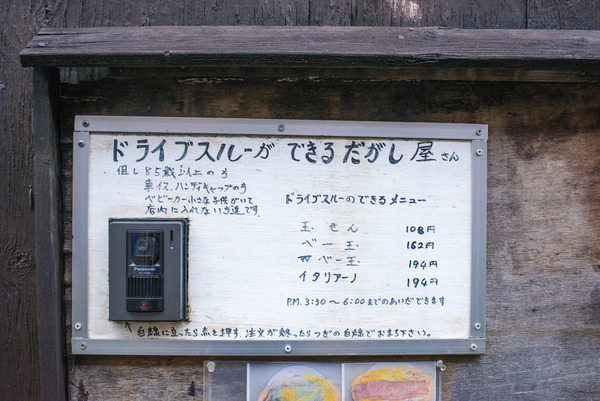 ドライブスルーができるだがし屋さん
但し85歳以上の方
車イス、ハンディキャップの方
ベビーカー小さな子供がいて
店内に入れない方達です
ドライブスルーのできるメニュー
玉せん 108円
ベー玉 162円
W ベー玉 194円
イタリアーノ 194円
P.M. 3:30〜6:00までのあいだできます
Panasonic
↑白線に立ったら点を押す、注文が終ったらつぎの白線でおまち下さい。